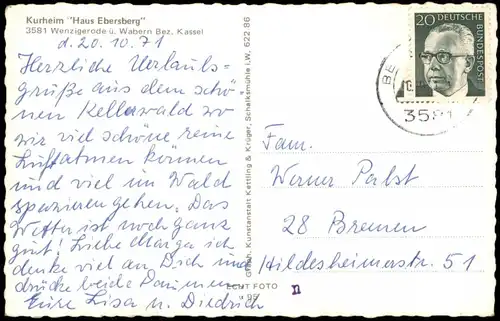 Kurheim "Haus Ebersberg"
3581 Wenzigerode ü. Wabern Bez. Kassel
d. 20.10.71
Herzliche Urlaubs-
grüße aus dem schö-
nen Kellerwald wo
wir viel schöne reine
Luft atmen können
und viel im Wald
spazierengehen. Das
Wetter ist noch ganz
gut! Liebe Marga ich
denke viel an Dich und
drücke beide Daumen
Eure Lisa u. Diedrich
Graph. Kunstanstalt Kettling & Krüger, Schalksmühle i.W. 622 86
ECHT FOTO
20 DEUTSCHE BUNDESPOST
3581
Fam.
Werner Pabst
28 Bremen
Hildesheimerstr. 51